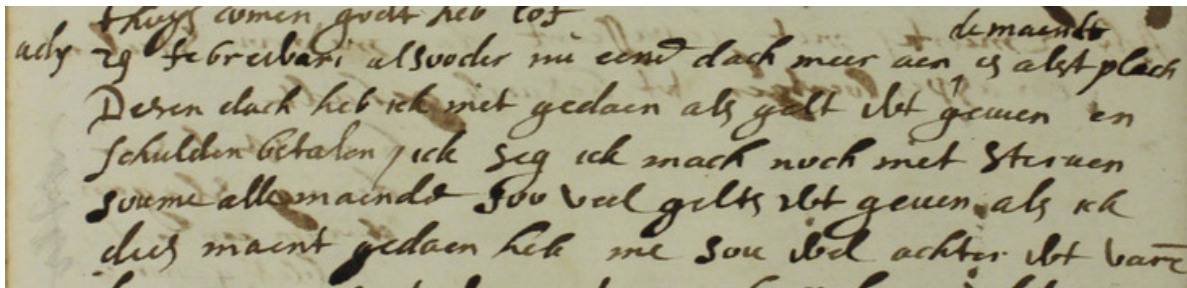 thuys comen godt heb lof
ady 29 februari alsoo der nu eene dach meer aen de maendt is alst plach
Desen dach heb ick niet gedaen als gelt wt geuen en
schulden betalen / ick seg ick mach noch niet steruen
soume alle maende soo veel gelts wt geuen als ick
dees maent gedaen heb me sou wel achter wt vare